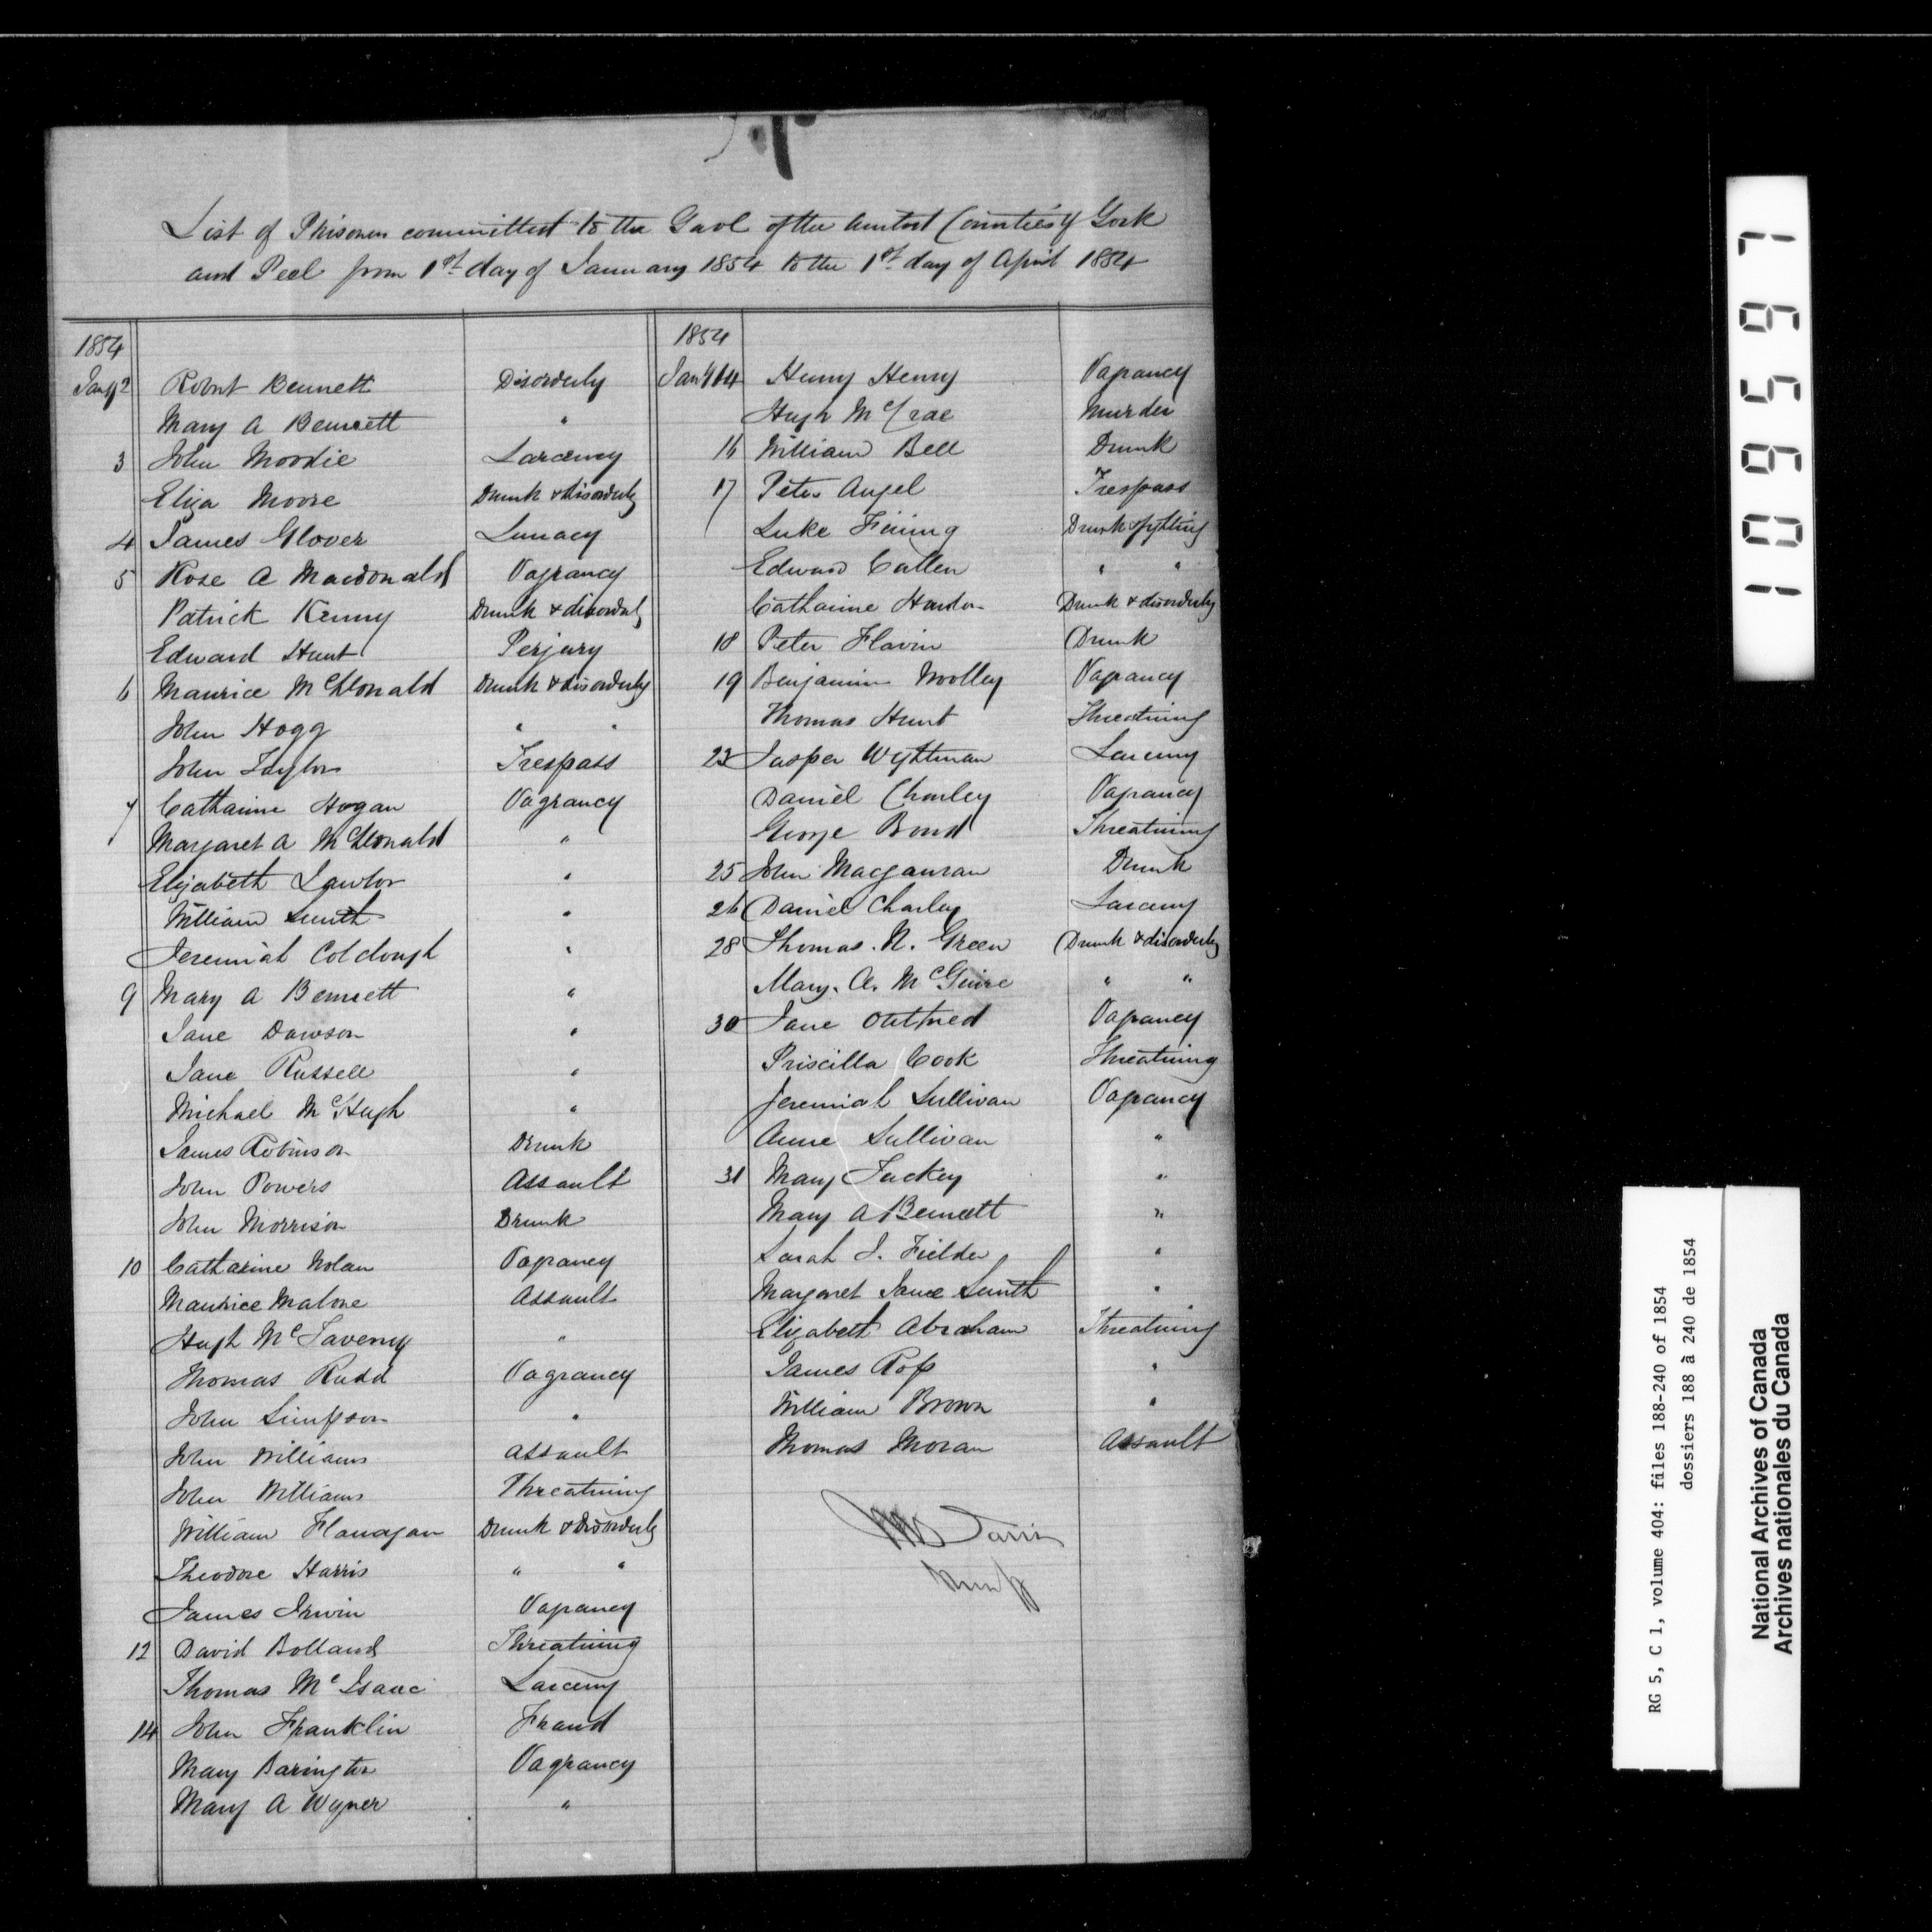 List of Prisoners committed to the Gaol of the United Counties of York
and Peel from 1st day of January 1854 to the 1st day of April 1854
1854
Jany 2 Robert Bennett Disorderly
Mary A Bennett "
3 John Moodie Larceny
Eliza Moore Drunk & disorderly
4 James Glover Lunacy
5 Rose A Macdonald Vagrancy
Patrick Kenny Drunk & disorderly
Edward Hunt Perjury
6 Maurice McDonald Drunk & disorderly
John Hogg " "
John Taylor Trespass
7 Catharine Hogan Vagrancy
Margaret A McDonald "
Elizabeth Lawlor "
William Smith "
Jeremiah Colclough "
9 Mary A Bennett "
Jane Dawson "
Jane Russell "
Michael McHugh "
James Robinson Drunk
John Powers Assault
John Morrison Drunk
10 Catharine Nolan Vagrancy
Maurice Malone Assault
Hugh McTaverny "
Thomas Rudd Vagrancy
John Simpson "
John Williams Assault
John Williams Threatning
William Flanagan Drunk & disorderly
Theodore Harris " "
James Irwin Vagrancy
12 David Bolland Threatning
Thomas McIsaac Larceny
14 John Franklin Fraud
Mary Barington Vagrancy
Mary A Wyner "
1854
Jany 14 Henry Henry Vagrancy
Hugh McCrae Murder
16 William Bell Drunk
17 Peter Angel Trespass
Luke Fining Drunk & fighting
Edward Cullen " "
Catharine Drunk & disorderly
18 Peter Flavin Drunk
19 Benjamin Woolley Vagrancy
Thomas Hunt Threatning
23 Jasper Wightman Larceny
Daniel Charley Vagrancy
George Bond Threatning
25 John Macgauran Drunk
26 Daniel Charley Larceny
28 Thomas. N. Green Drunk & disorderly
Mary. A. McGuire " "
30 Jane Outhred Vagrancy
Priscilla Cook Threatning
Jeremiah Sullivan Vagrancy
Anne Sullivan "
31 Mary Tuckey "
Mary A Bennett "
Sarah J. Fielder "
Margaret Jane Smith "
Elizabeth Abraham Threatning
James Ross "
William Brown "
Thomas Moran Assault
109597
RG 5, C 1, volume 404: files 188-240 of 1854
dossiers 188 à 240 de 1854
National Archives of Canada
Archives nationales du Canada